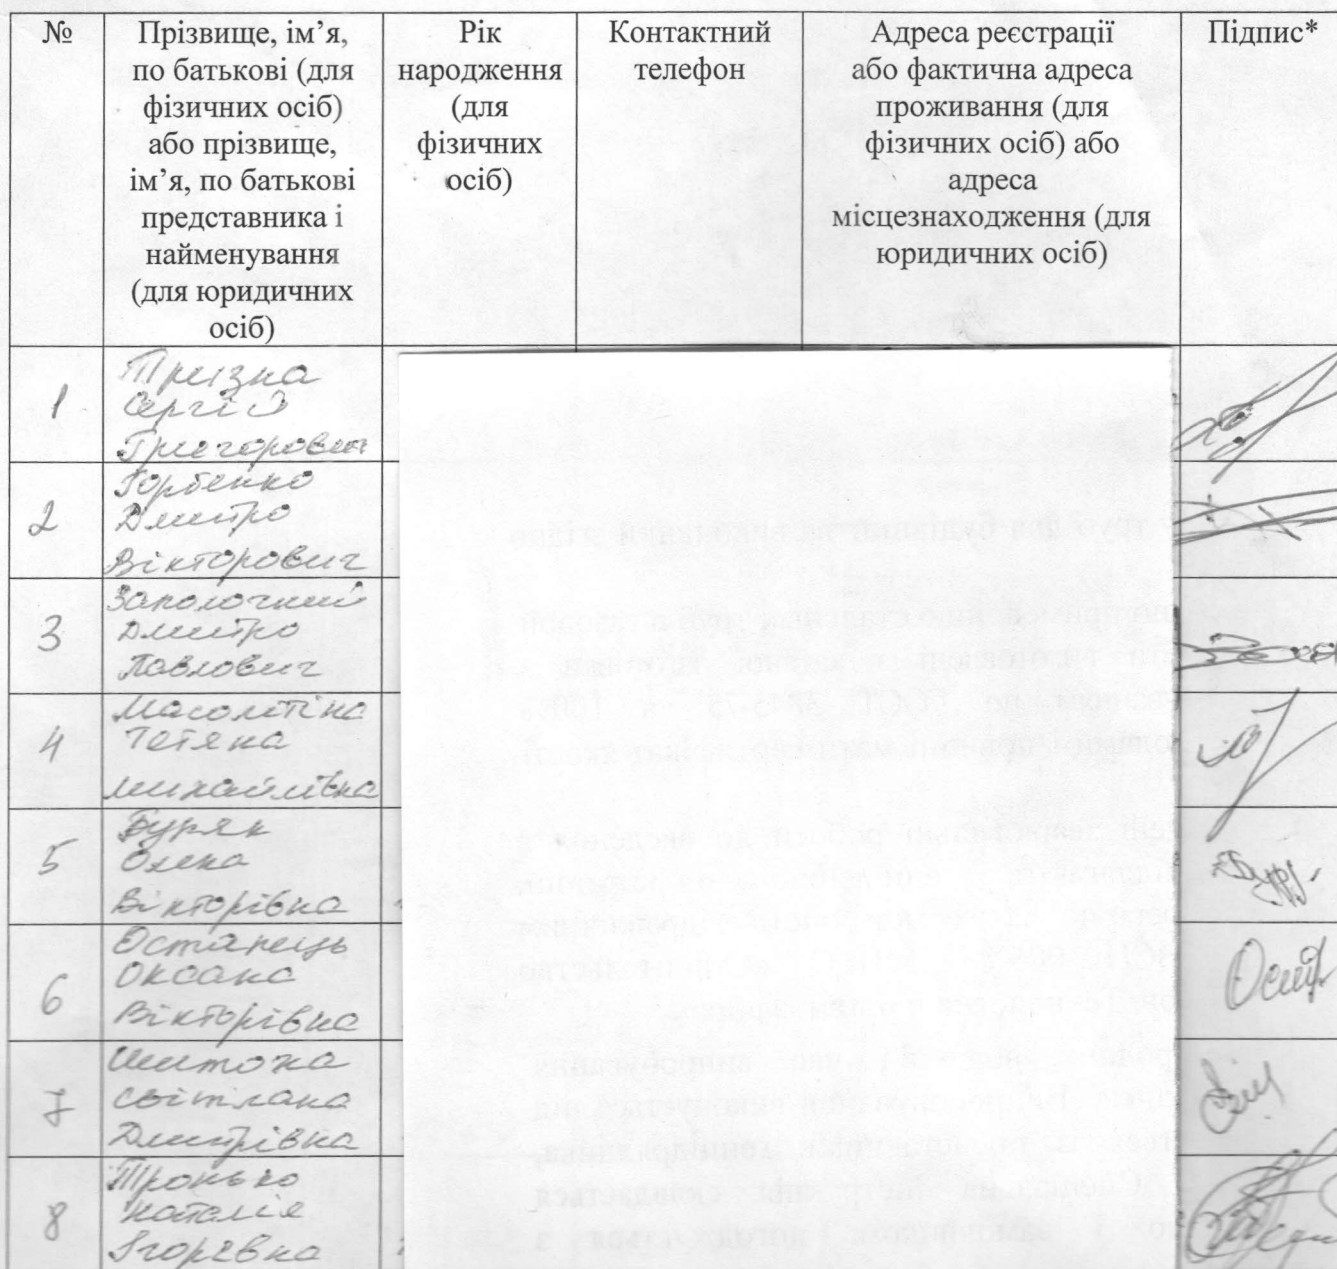 №
Прізвище, ім’я,
по батькові (для
фізичних осіб)
або прізвище,
ім’я, по батькові
представника і
найменування
(для юридичних
осіб)
Рік
народження
(для
фізичних
осіб)
Контактний
телефон
Адреса реєстрації
або фактична адреса
проживання (для
фізичних осіб) або
адреса
місцезнаходження (для
юридичних осіб)
Підпис*
1
Тризна
Сергій
Григорович
2
Горбенко
Дмитро
Вікторович
3
Заполочний
Дмитро
Павлович
4
Масолітіна
Тетяна
Михайлівна
5
Буряк
Олена
Вікторівна
6
Останець
Оксана
Вікторівна
7
Шитожа
Світлана
Дмитрівна
8
Тронько
Наталія
Ігорівна